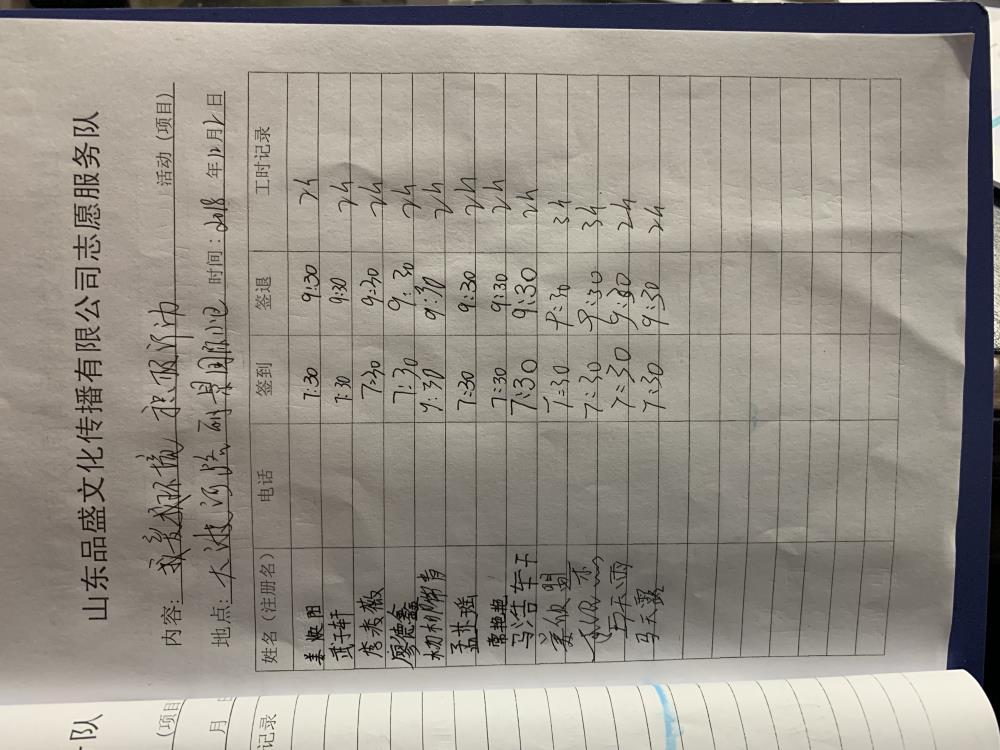 山东品盛文化传播有限公司志愿服务队
内容: 环境 活动（项目）
地点: 大 河路 时间: 2018 年12月2日
姓名（注册名） 电话 签到 签退 工时记录
姜 阳 7:30 9:30 2h
武子轩 7:30 9:30 2h
李秀薇 7:30 9:30 2h
廖德鑫 7:30 9:30 2h
9:30 9:30 2h
孟苏瑶 7:30 9:30 2h
常艳艳 7:30 9:30 2h
马浩 7:30 9:30 2h
姜 盟 7:30 9:30 3h
7:30 9:30 3h
马天雨 7:30 9:30 2h
马天露 7:30 9:30 2h
队
（项目
月
记录